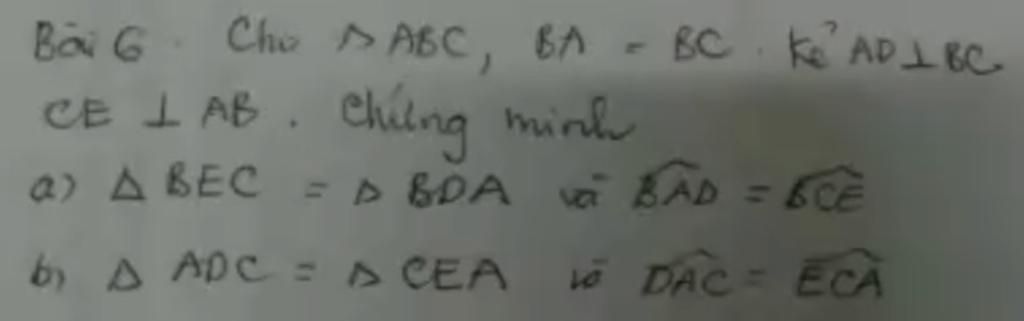 Bài 6. Cho △ ABC, BA = BC. Kẻ AD ⊥ BC
CE ⊥ AB. Chứng minh
a) △ BEC = △ BDA và \widehat{BAD} = \widehat{BCE}
b) △ ADC = △ CEA và \widehat{DAC} = \widehat{ECA}